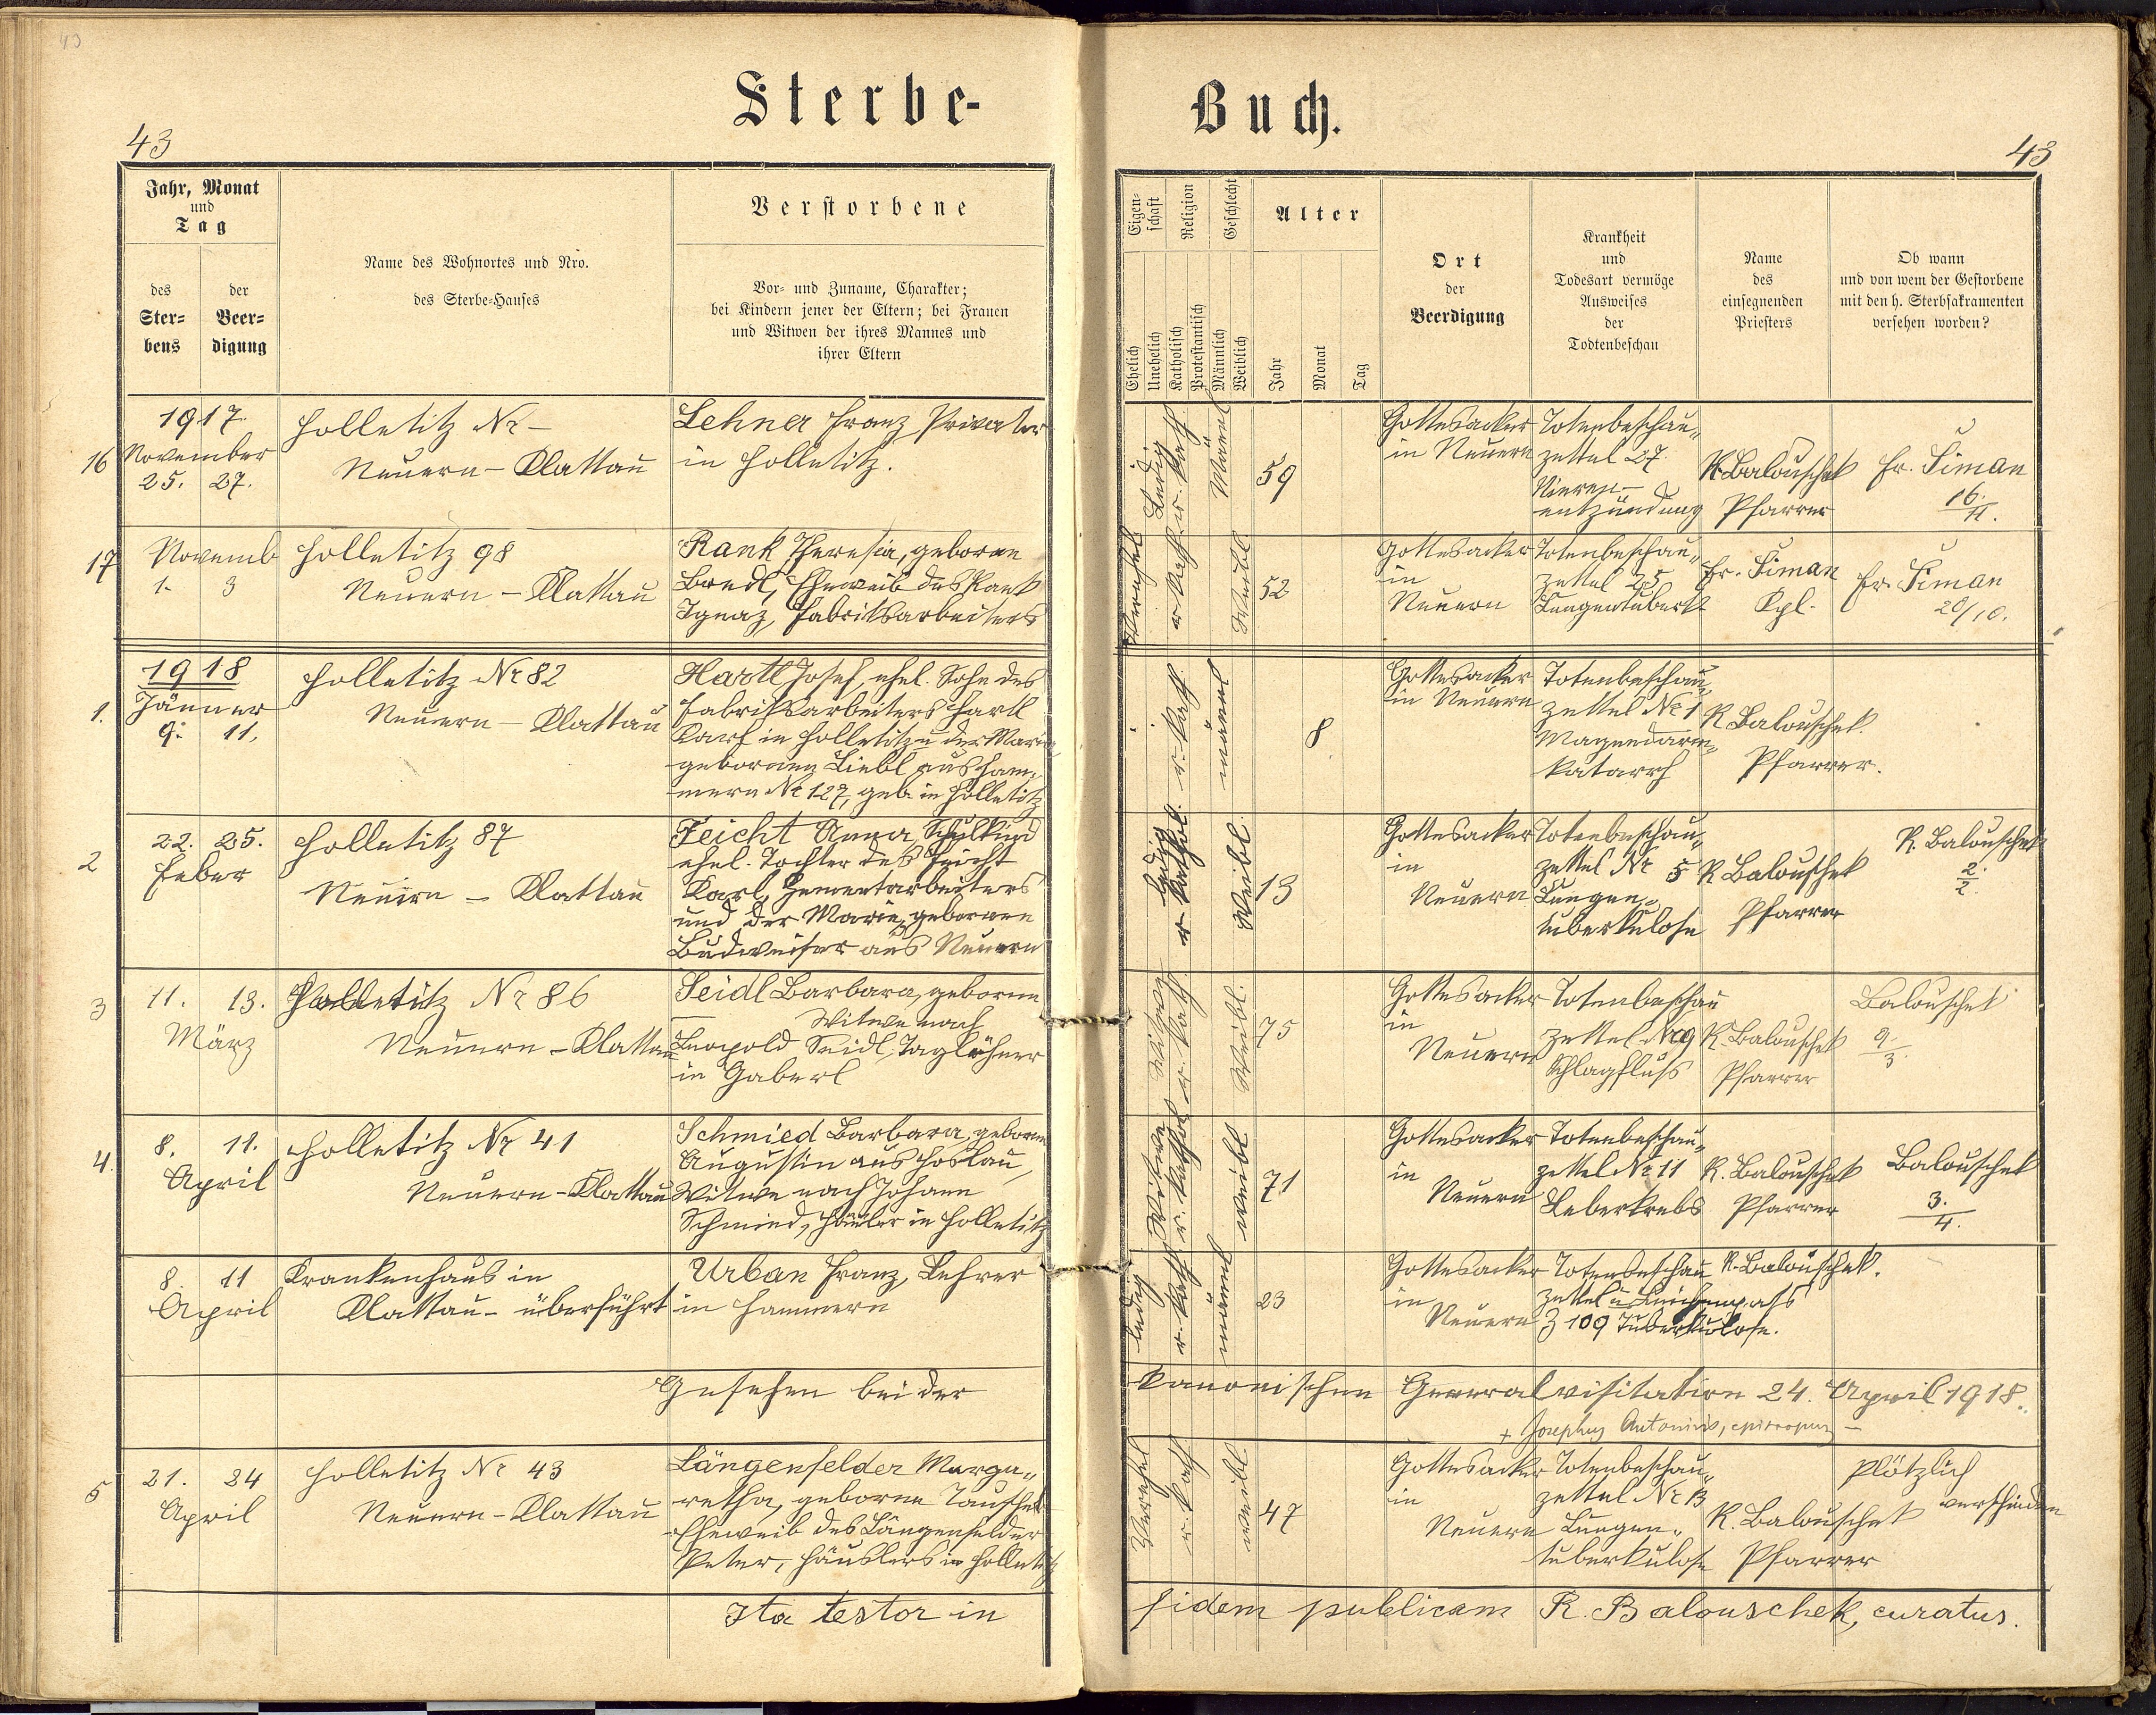 43
Sterbe-
Buch.
43
43
Jahr, Monat
und
Tag
des
Ster-
bens
der
Beer-
digung
Name des Wohnortes und Nro.
des Sterbe-Hauses
Verstorbene
Vor- und Zuname, Charakter;
bei Kindern jener der Eltern; bei Frauen
und Witwen der ihres Mannes und
ihrer Eltern
Eigen-
schaft
Religion
Geschlecht
Alter
Ehelich
Unehelich
Katholisch
Protestantisch
Männlich
Weiblich
Jahr
Monat
Tag
Ort
der
Beerdigung
Krankheit
und
Todesart vermöge
Ausweises
der
Todtenbeschau
Name
des
einsegnenden
Priesters
Ob wann
und von wem der Gestorbene
mit den h. Sterbsakramenten
versehen worden?
16
1917.
November
25. 27.
Holletitz Nr –
Neuern – Klattau
Lehner Franz Privater
in Holletitz.
Ledig
r. kath
Männl
59
Gottesacker
in Neuern
Totenbeschau-
zettel 27.
Nieren-
entzündung
K Balouschek
Pfarrer
Fr. Šiman
16./11.
17
Novemb
1. 3
Holletitz 98
Neuern – Klattau
Rank Theresia, geborene
Bredl, Eheweib des Rank
Ignaz, Fabriksarbeiters
Verehel
r kath.
Weibl
52
Gottesacker
in
Neuern
Totenbeschau-
zettel 25
Lungentuberk
Fr. Šiman
Kpl.
Fr. Šiman
20/10.
1.
1918
Jänner
9. 11.
Holletitz Nr 82
Neuern – Klattau
Hartl Josef, ehel. Sohn des
Fabriksarbeiters Hartl
Karl in Holletitz u der Marie
geborenen Liebl aus Ham-
mern Nr 127, geb. in Holletitz
r. kath.
männl
8
Gottesacker
in Neuern
Totenbeschau-
zettel Nr 1
Magendarm-
katarrh
R Balouschek.
Pfarrer.
2
22. 25.
Feber
Holletitz 87
Neuern – Klattau
Feicht Anna, Schulkind
ehel. Tochter des Feicht
Karl, Zementarbeiters
und der Marie, geborenen
Budweiser aus Neuern
ledig
r kathol.
Weibl.
13
Gottesacker
in
Neuern
Totenbeschau-
zettel Nr 5
Lungen-
tuberkulose
R Balouschek
Pfarrer
R. Balouschek
2./2.
3
11. 13.
März
Holletitz Nr 86
Neuern – Klattau
Seidl Barbara, geborene
— Witwe nach
Leopold Seidl, Taglöhner
in Gaberl
Witwe
r. kath.
Weibl.
75
Gottesacker
in
Neuern
Totenbeschau
zettel Nr 9
Schlagfluss
R. Balouschek
Pfarrer
Balouschek
9./3.
4.
8. 11.
April
Holletitz Nr 41
Neuern – Klattau
Schmied Barbara, geborene
Augustin aus Hoslau,
Witwe nach Johann
Schmied, Häusler in Holletitz
Witwe
r. kathol
weibl
71
Gottesacker
in
Neuern
Totenbeschau-
zettel Nr 11
Leberkrebs
R. Balouschek
Pfarrer
Balouschek
3./4.
8. 11
April
Krankenhaus in
Klattau – überführt
Urban Franz, Lehrer
in Hammern
ledig
r. kath
männl
23
Gottesacker
in
Neuern
Totenbeschau
zettel u Leichenpass
Z 109 Tuberkulose.
R. Balouschek.
Gesehen bei der kanonischen Generalvisitation 24. April 1918.
+ Josephus Antonius, episcopus –
5
21. 24
April
Holletitz Nr 43
Neuern – Klattau
Längenfelder Marga-
retha, geborene Tauscher
Eheweib des Längenfelder
Peter, Häuslers in Holletitz
Verehel
r. kath.
weibl
47
Gottesacker
in
Neuern
Totenbeschau-
zettel Nr 13
Lungen-
tuberkulose
R. Balouschek
Pfarrer
Plötzlich
verschieden
Ita testor in fidem publicam R. Balouschek, curatus.